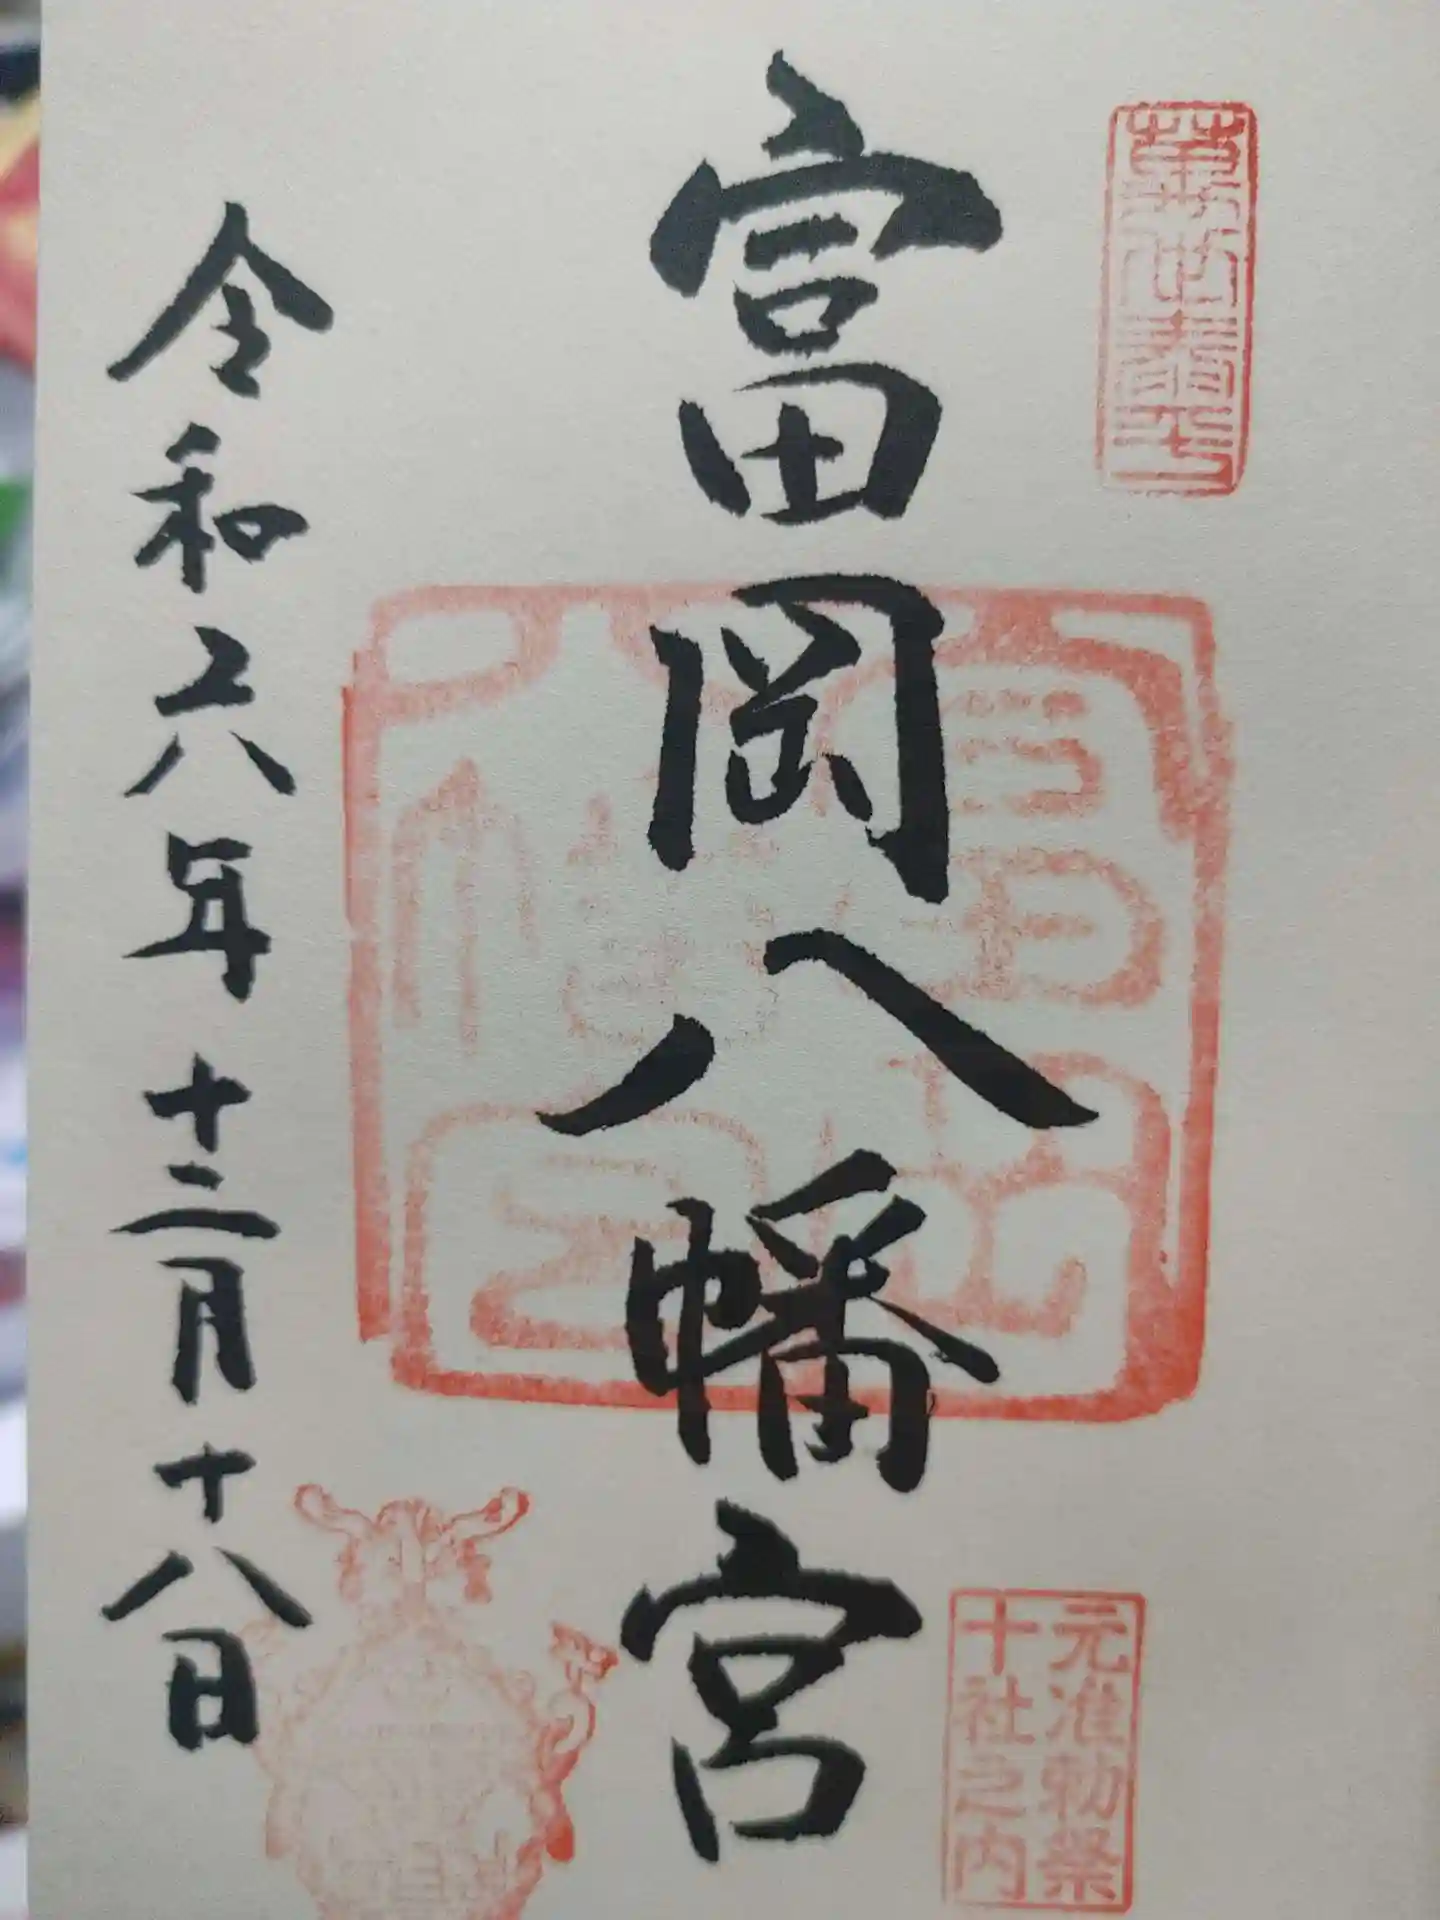 富岡八幡宮
元准勅祭
十社之内
令和六年十二月十八日